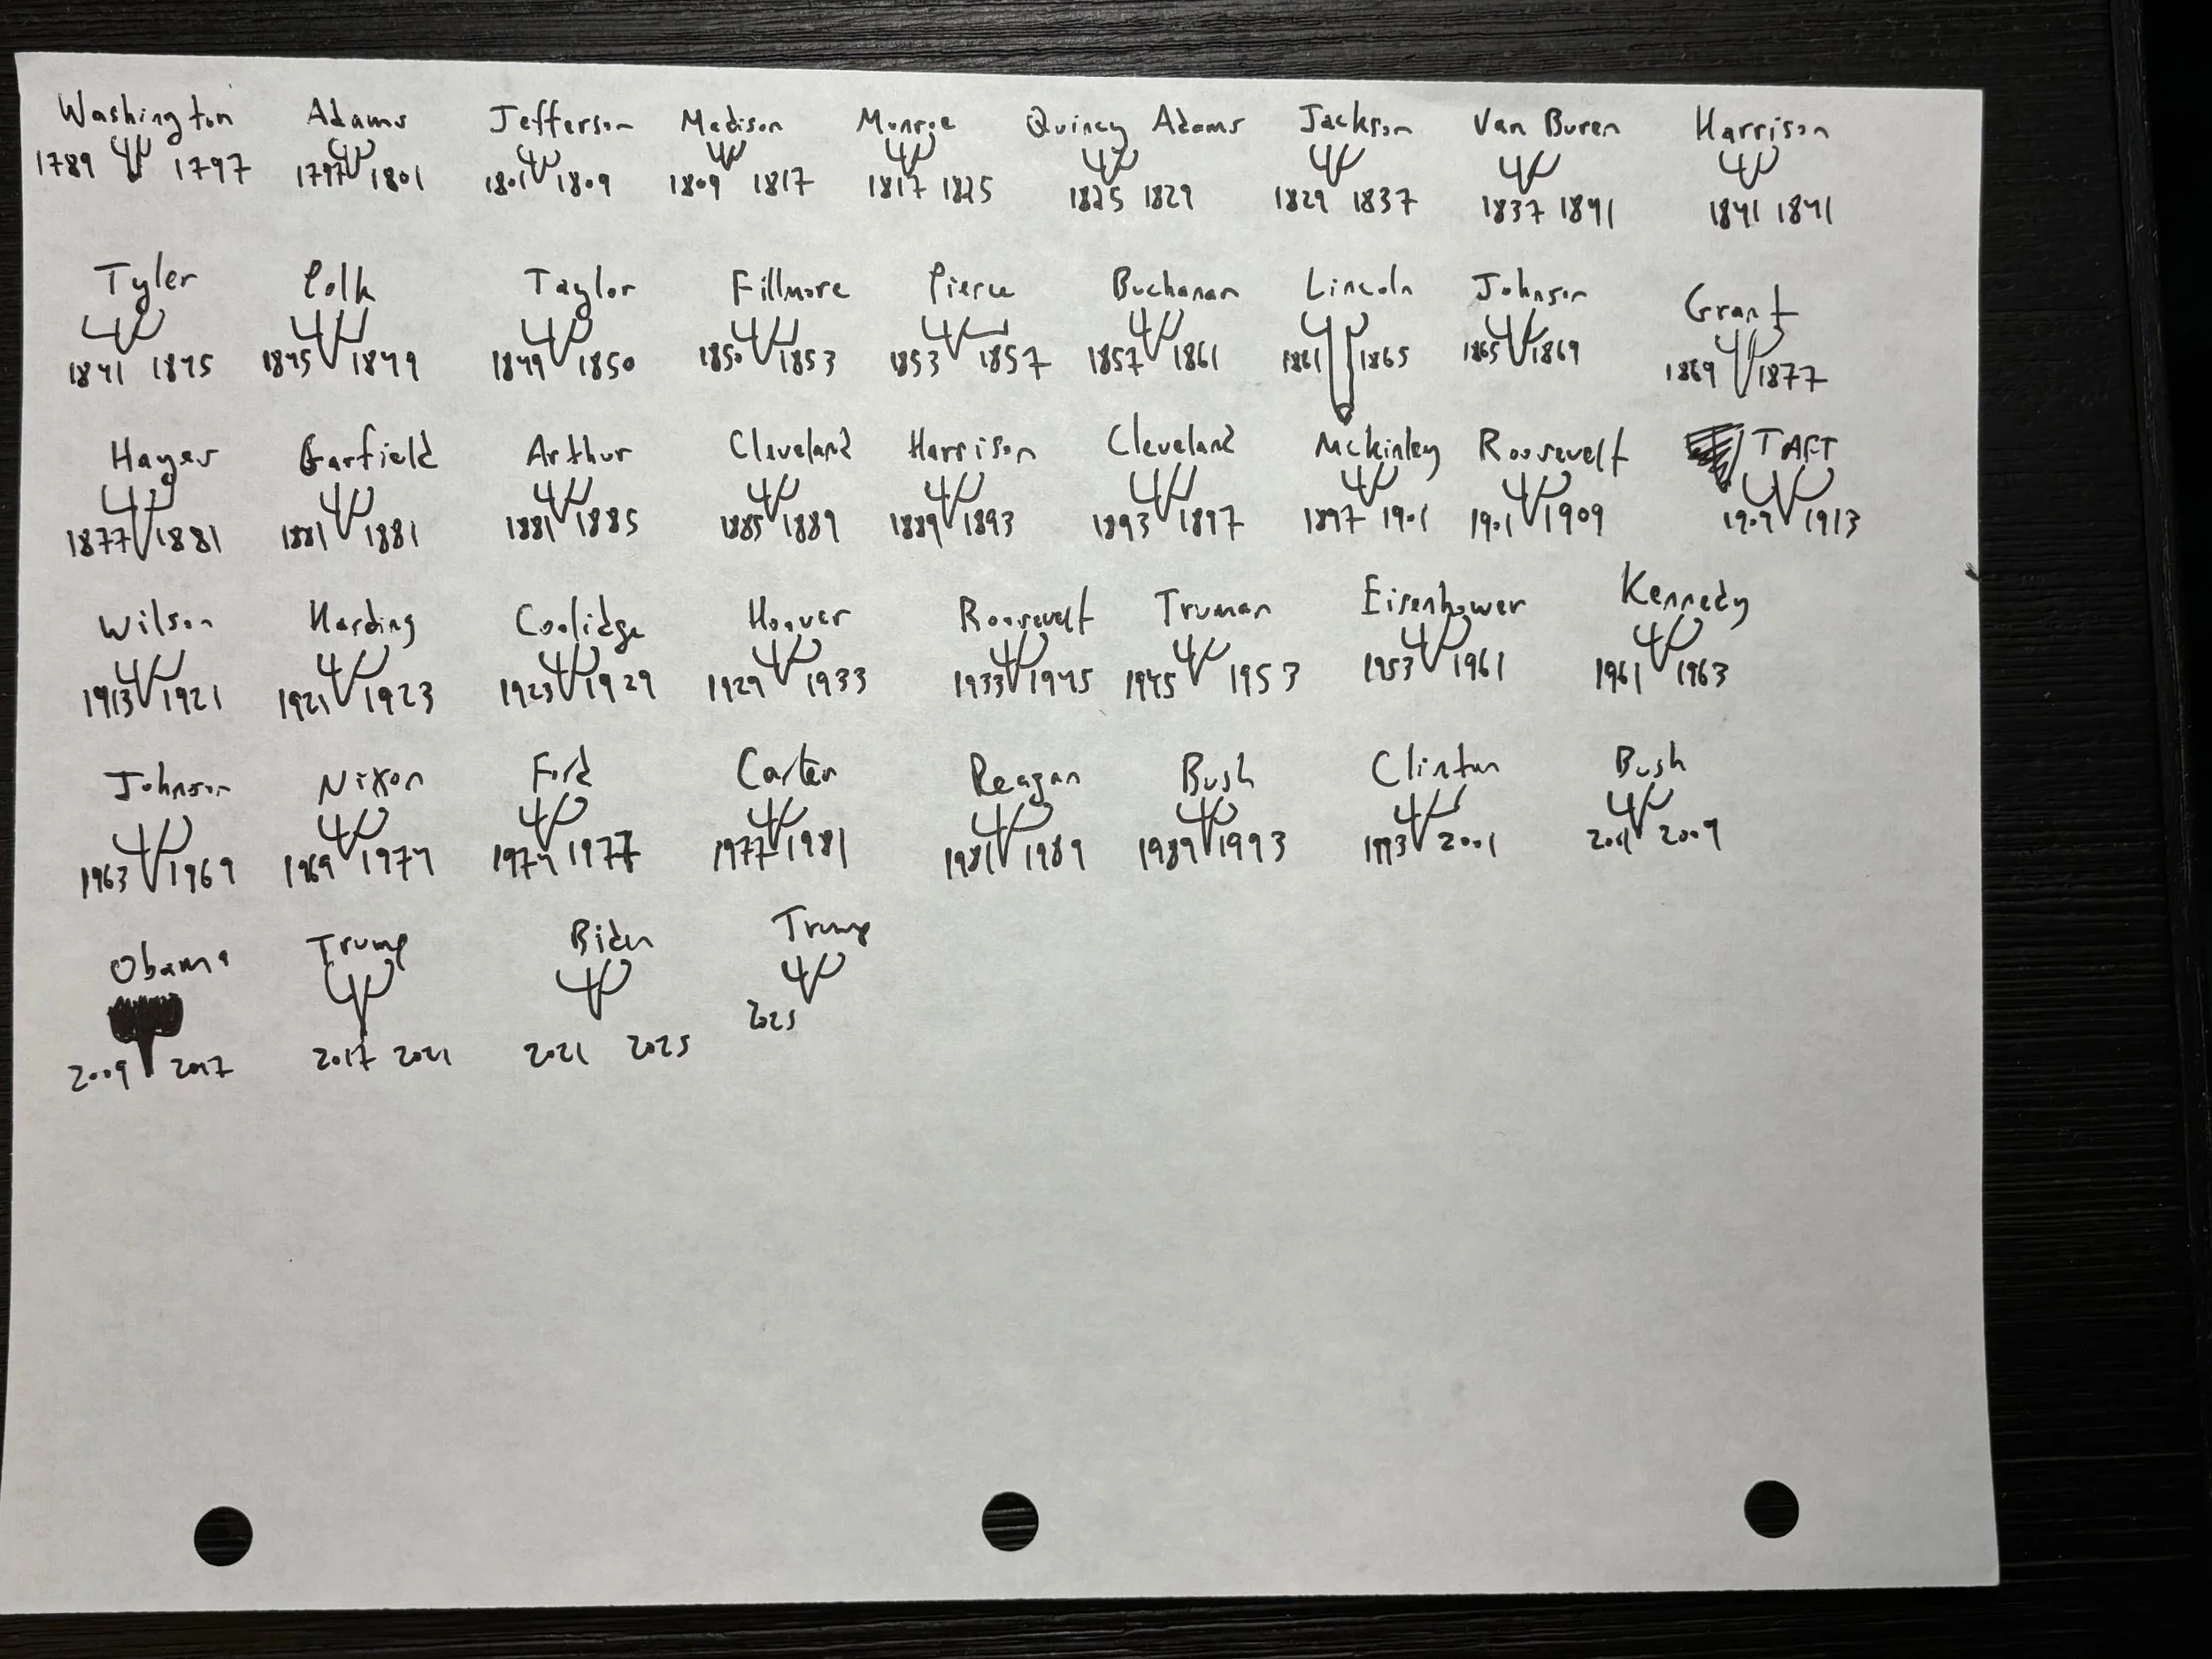 Washington Adams Jefferson Madison Monroe Quincy Adams Jackson Van Buren Harrison
1789 1797 1797 1801 1801 1809 1809 1817 1817 1825 1825 1829 1829 1837 1837 1841 1841 1841
Tyler Polk Taylor Fillmore Pierce Buchanan Lincoln Johnson Grant
1841 1845 1845 1849 1849 1850 1850 1853 1853 1857 1857 1861 1861 1865 1865 1869 1869 1877
Hayes Garfield Arthur Cleveland Harrison Cleveland Mckinley Roosevelt TAFT
1877 1881 1881 1881 1881 1885 1885 1889 1889 1893 1893 1897 1897 1901 1901 1909 1909 1913
Wilson Harding Coolidge Hoover Roosevelt Truman Eisenhower Kennedy
1913 1921 1921 1923 1923 1929 1929 1933 1933 1945 1945 1953 1953 1961 1961 1963
Johnson Nixon Ford Carter Reagan Bush Clinton Bush
1963 1969 1969 1974 1974 1977 1977 1981 1981 1989 1989 1993 1993 2001 2001 2009
Obama Trump Biden Trump
2009 2017 2017 2021 2021 2025 2025